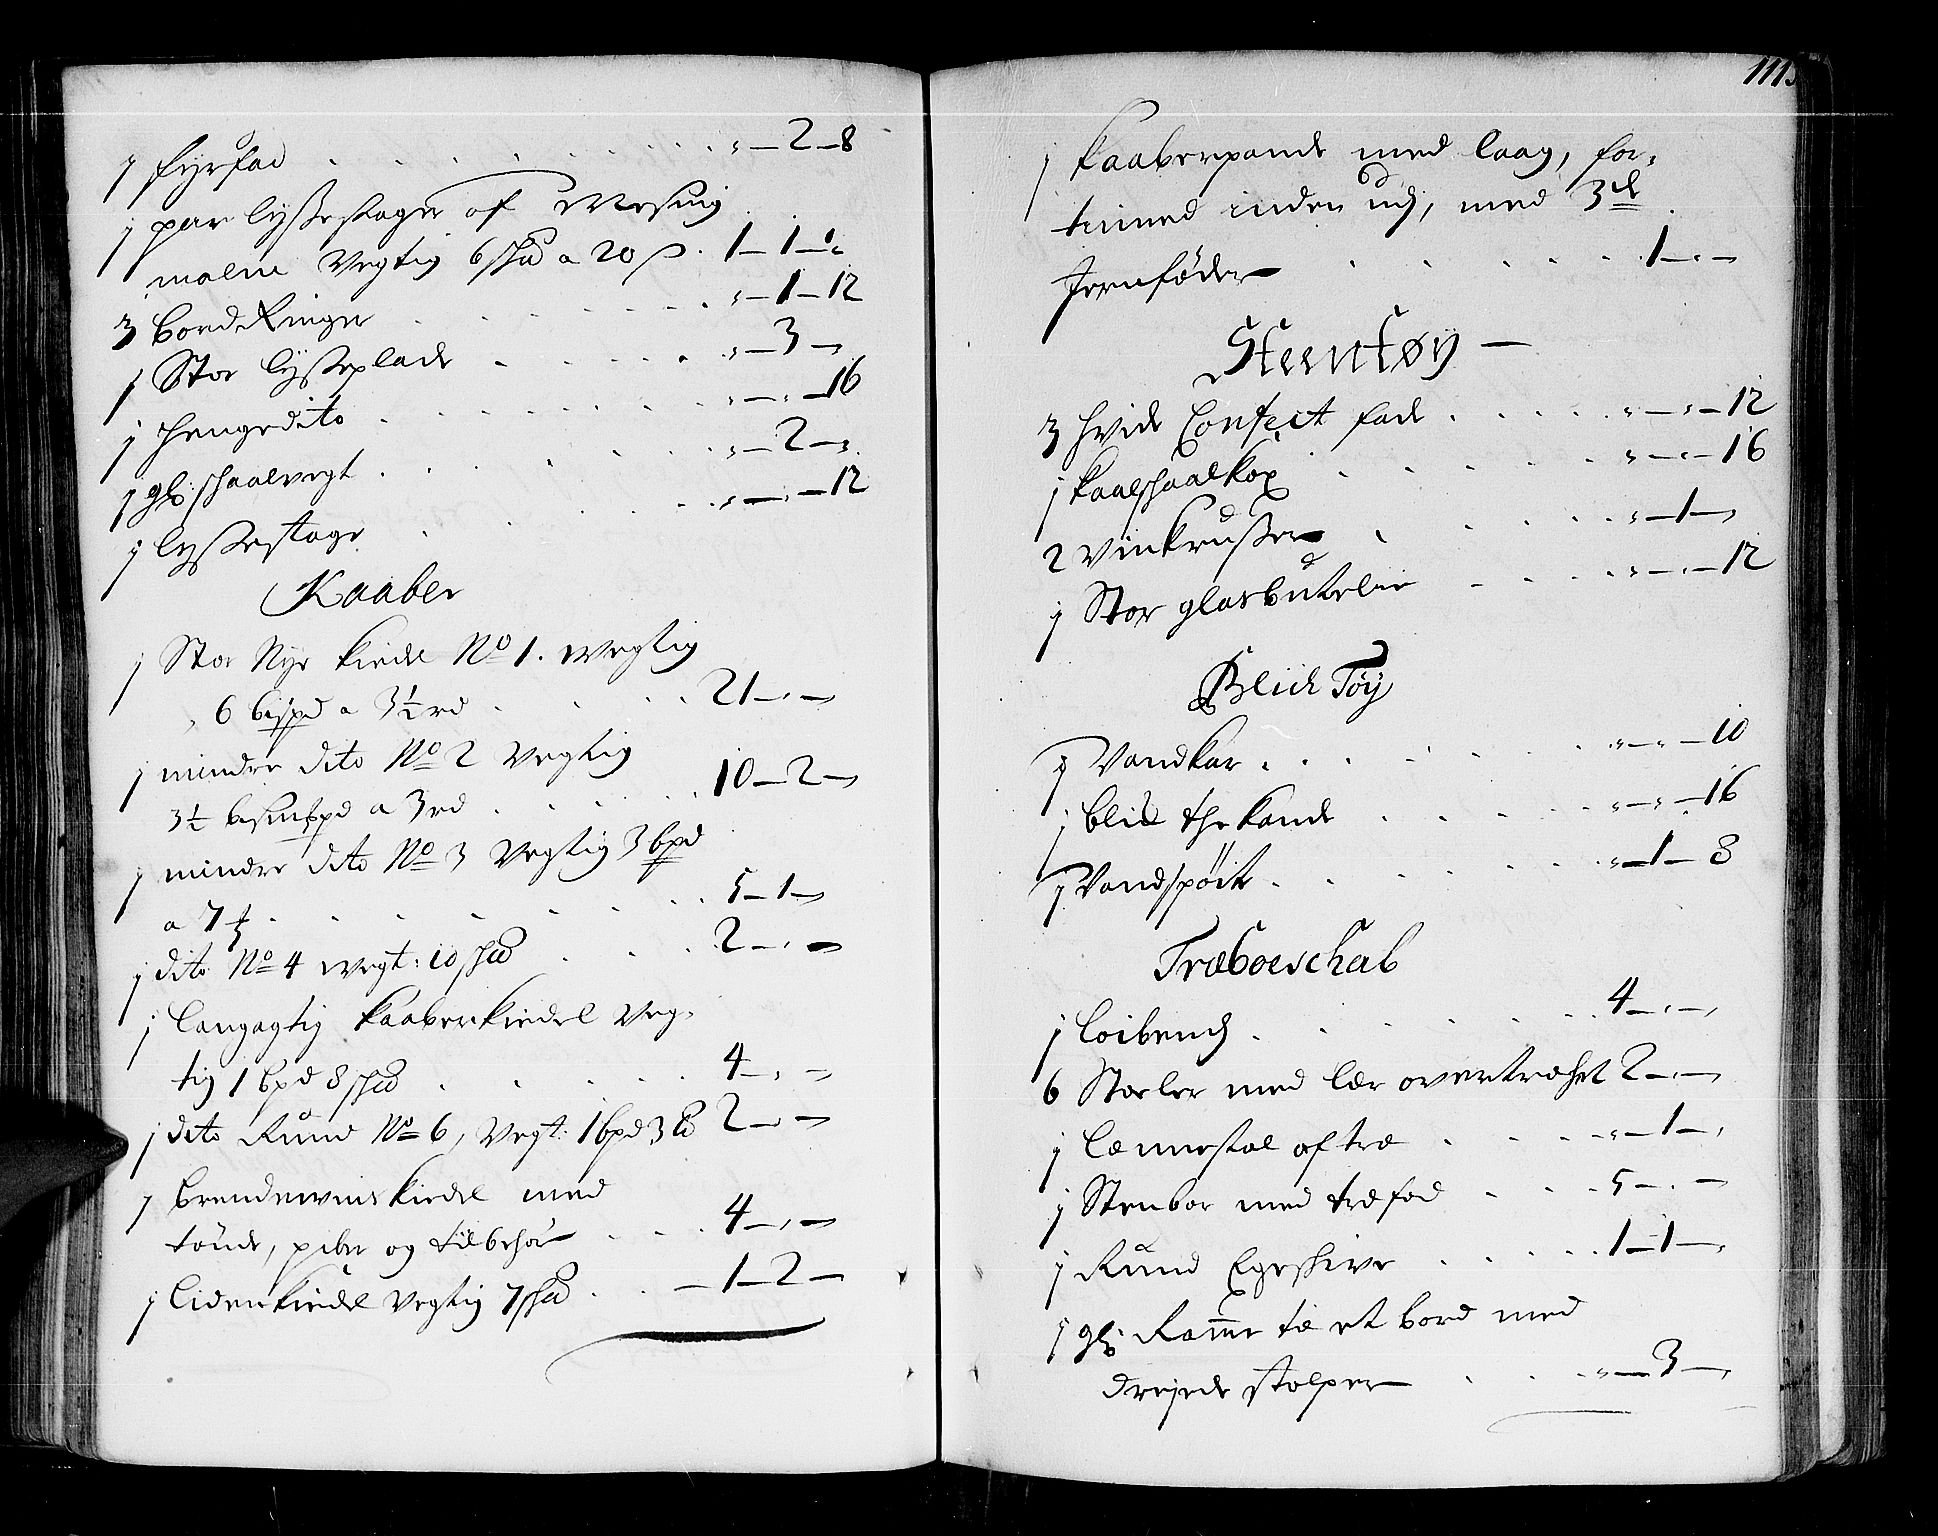 1 fyrfad . . . . . . . „ — 2 — 8
1 par lysestager af Mesing
malm vegtig 6 sk℔ a 20 s. 1 — 1 — „
3 bordRinger . . . . . „ — 1 — 12
1 Stor lyseplade . . . . „ — 3 — „
1 hengedito . . . . . „ — „ — 16
1 gl: schaalvegt . . . . „ — 2 — „
1 lysestage . . . . „ — „ — 12
Kaaber
1 Stor Nye kiedel No 1. vegtig
6 bispd a 3½ rd . . . 21 — „ —
1 mindre dito No 2 Vegtig
3½ bismpd a 3 rd . . . 10 — 2 — „
1 mindre dito No 3 Vegtig 3 bpd
a 7 . . . . . . 5 — 1 — „
1 dito No 4 vegt: 10 sk℔ . . 2 — „ —
1 langagtig kaaberkiedel veg-
tig 1 bpd 8 sk℔ . . . . 4 — „ —
1 dito Rund No 6, Vegt: 1 bpd 3 ℔ 2 — „ —
1 brendevinskiedel med
tønde, piber og tilbehør . . 4 — „ —
1 liden kiedel vegtig 7 sk℔ . . — 1 — 2 —
111
1 kaaberpande med laag, for-
tinned inden udj, med 3de
Jernføder . . . . . 1 — „ —
Steentøy —
3 hvide Confect fade . . . . „ — „ — 12
1 kaalschaalkop . . . . „ — „ — 16
2 vinkruser . . . . „ — 1 — „
1 Stor glasbutelie . . . . „ — „ — 12
Blick Tøy
1 Vandkar . . . . . „ — „ — 10
1 blik the kande . . . . „ — „ — 16
1 Vandspøite . . . . . „ — 1 — 8
Træboeschab
1 loibench . . . . . 4 — „ — „
6 Stoeler med lær overtrechet 2 — „ —
1 lænnestoel af træ . . . „ — 1 — „
1 Stenbor med træfod . . . 5 — „ —
1 Rund Egeskive . . . . 1 — 1 — „
1 gl: Ramme til et bord med
dreyede stolper . . . „ — 3 — „